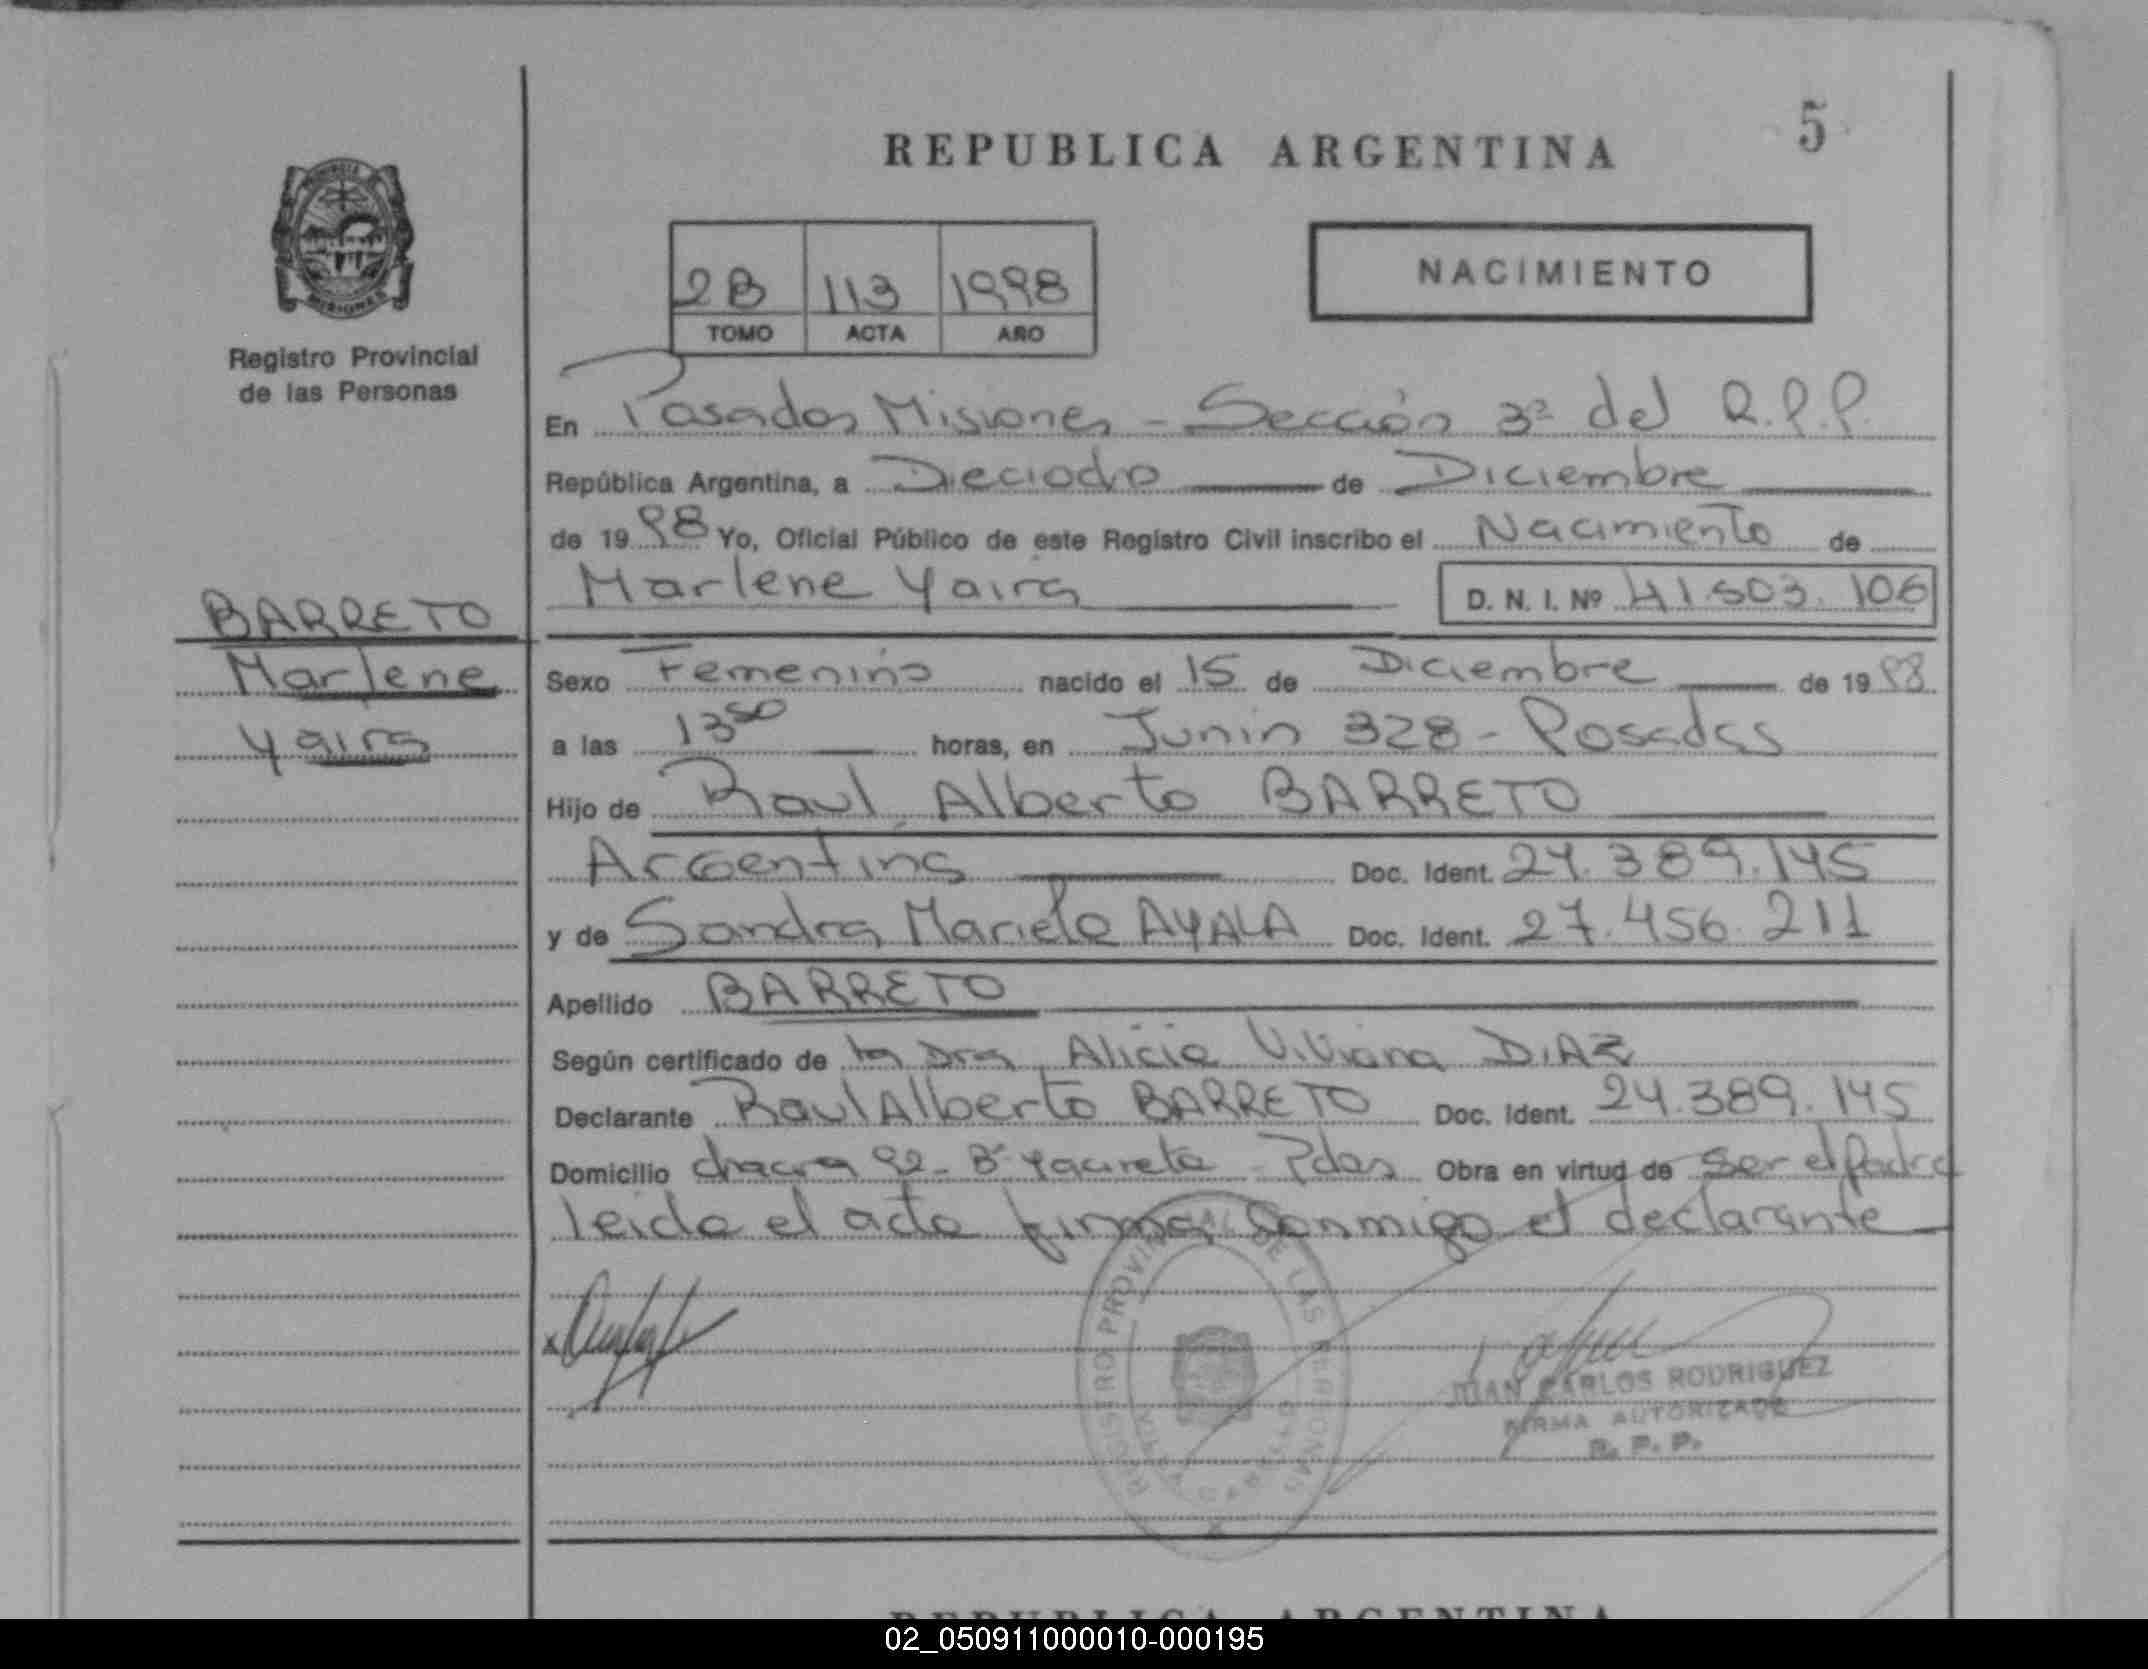 REPUBLICA ARGENTINA
5
PROVINCIA DE
MISIONES
Registro Provincial
de las Personas
2B 113 1998
TOMO ACTA AÑO
NACIMIENTO
En Posadas Misiones - Sección 3ª del R.P.P.
República Argentina, a Dieciocho de Diciembre
de 1998 Yo, Oficial Público de este Registro Civil inscribo el Nacimiento de
Marlene Yaira D. N. I. Nº 41.503.106
BARRETO
Marlene
Yaira
Sexo Femenino nacido el 15 de Diciembre de 1998
a las 13 50 horas, en Junin 328 - Posadas
Hijo de Raul Alberto BARRETO
Argentino Doc. Ident. 24.389.145
y de Sandra Mariela AYALA Doc. Ident. 27.456.211
Apellido BARRETO
Según certificado de la Dra Alicia Viviana DIAZ
Declarante Raul Alberto BARRETO Doc. Ident. 24.389.145
Domicilio chacra 92 - Bº Yacireta - Pdas Obra en virtud de ser el padre
leida el acta firma conmigo el declarante
REGISTRO PROVINCIAL DE LAS PERSONAS
JUAN CARLOS RODRIGUEZ
FIRMA AUTORIZADA
R. P. P.
REPUBLICA ARGENTINA
02_050911000010-000195